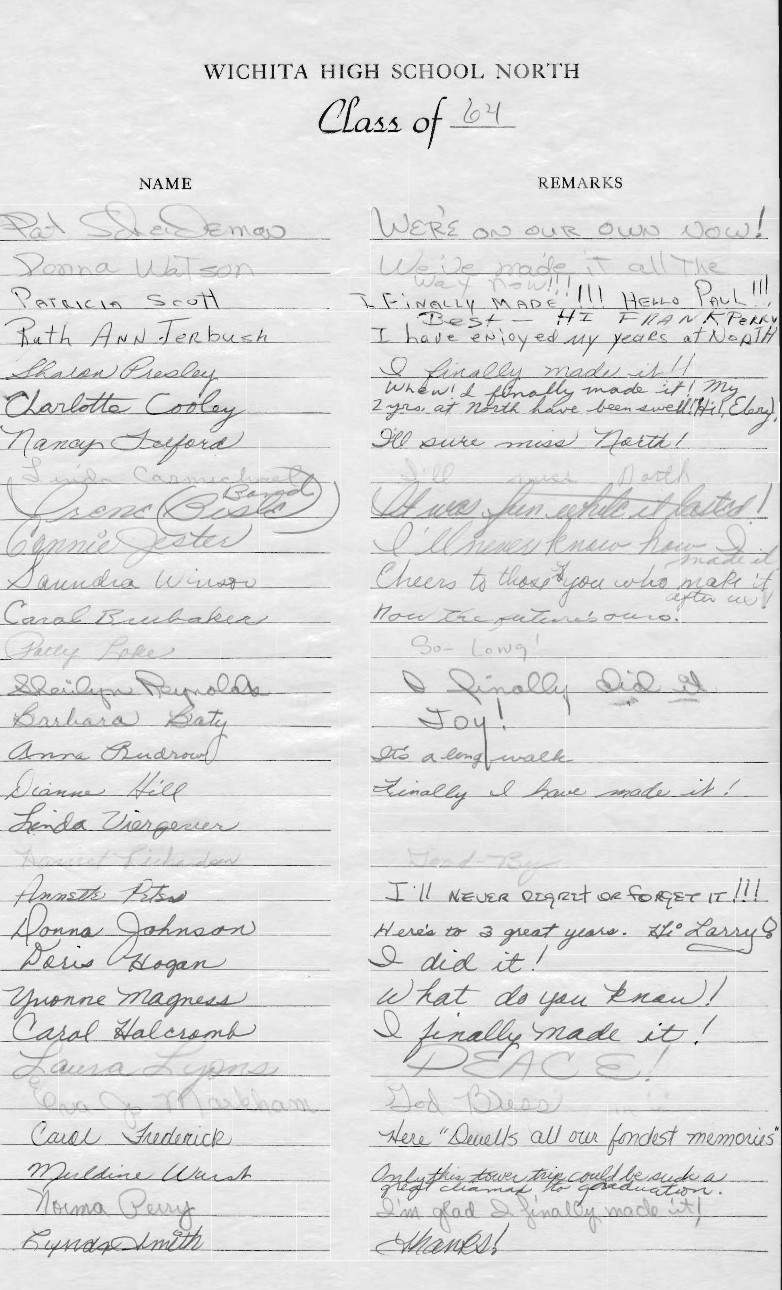 WICHITA HIGH SCHOOL NORTH
Class of 64
NAME REMARKS
Pat Scheideman WE'RE ON OUR OWN NOW!
Donna Watson We've made it all The
Way Now!!!
Patricia Scott I Finally MADE!!! HELLO PAUL!!!
Best - HI FRANK PERRY
Ruth Ann Terbush I have enjoyed my years at North
Sharon Presley I finally made it!!
Whew! I finally made it! My
Charlotte Cooley 2 yrs. at North have been swell!
Nancy Telford I'll sure miss North!
Linda Carmichael I'll miss North
Band
Irene It was fun while it lasted!
Connie Jester I'll never know how I
made it
Saundra Winson Cheers to those of you who make it
after us!
Carol Brubaker Now the future's ours.
Patty Lake So-Long!
Sherilyn Reynolds I finally did it
Barbara Baty Joy!
Anna Budrow It's a long walk
Dianne Hill Finally I have made it!
Linda Viergever
Good-By
Annette Peters I'll NEVER REGRET OR FORGET IT!!!
Donna Johnson Here's to 3 great years. Hi Larry
Doris Hogan I did it!
Yvonne Magness What do you know!
Carol Halcromb I finally made it!
Laura Lyons PEACE!
Eva Jo Markham God Bless
Carol Frederick Here "Dwells all our fondest memories"
Muldine Wurst Only this tower trip could be such a
great climax to graduation.
Norma Perry I'm glad I finally made it!
Lynda Smith Thanks!